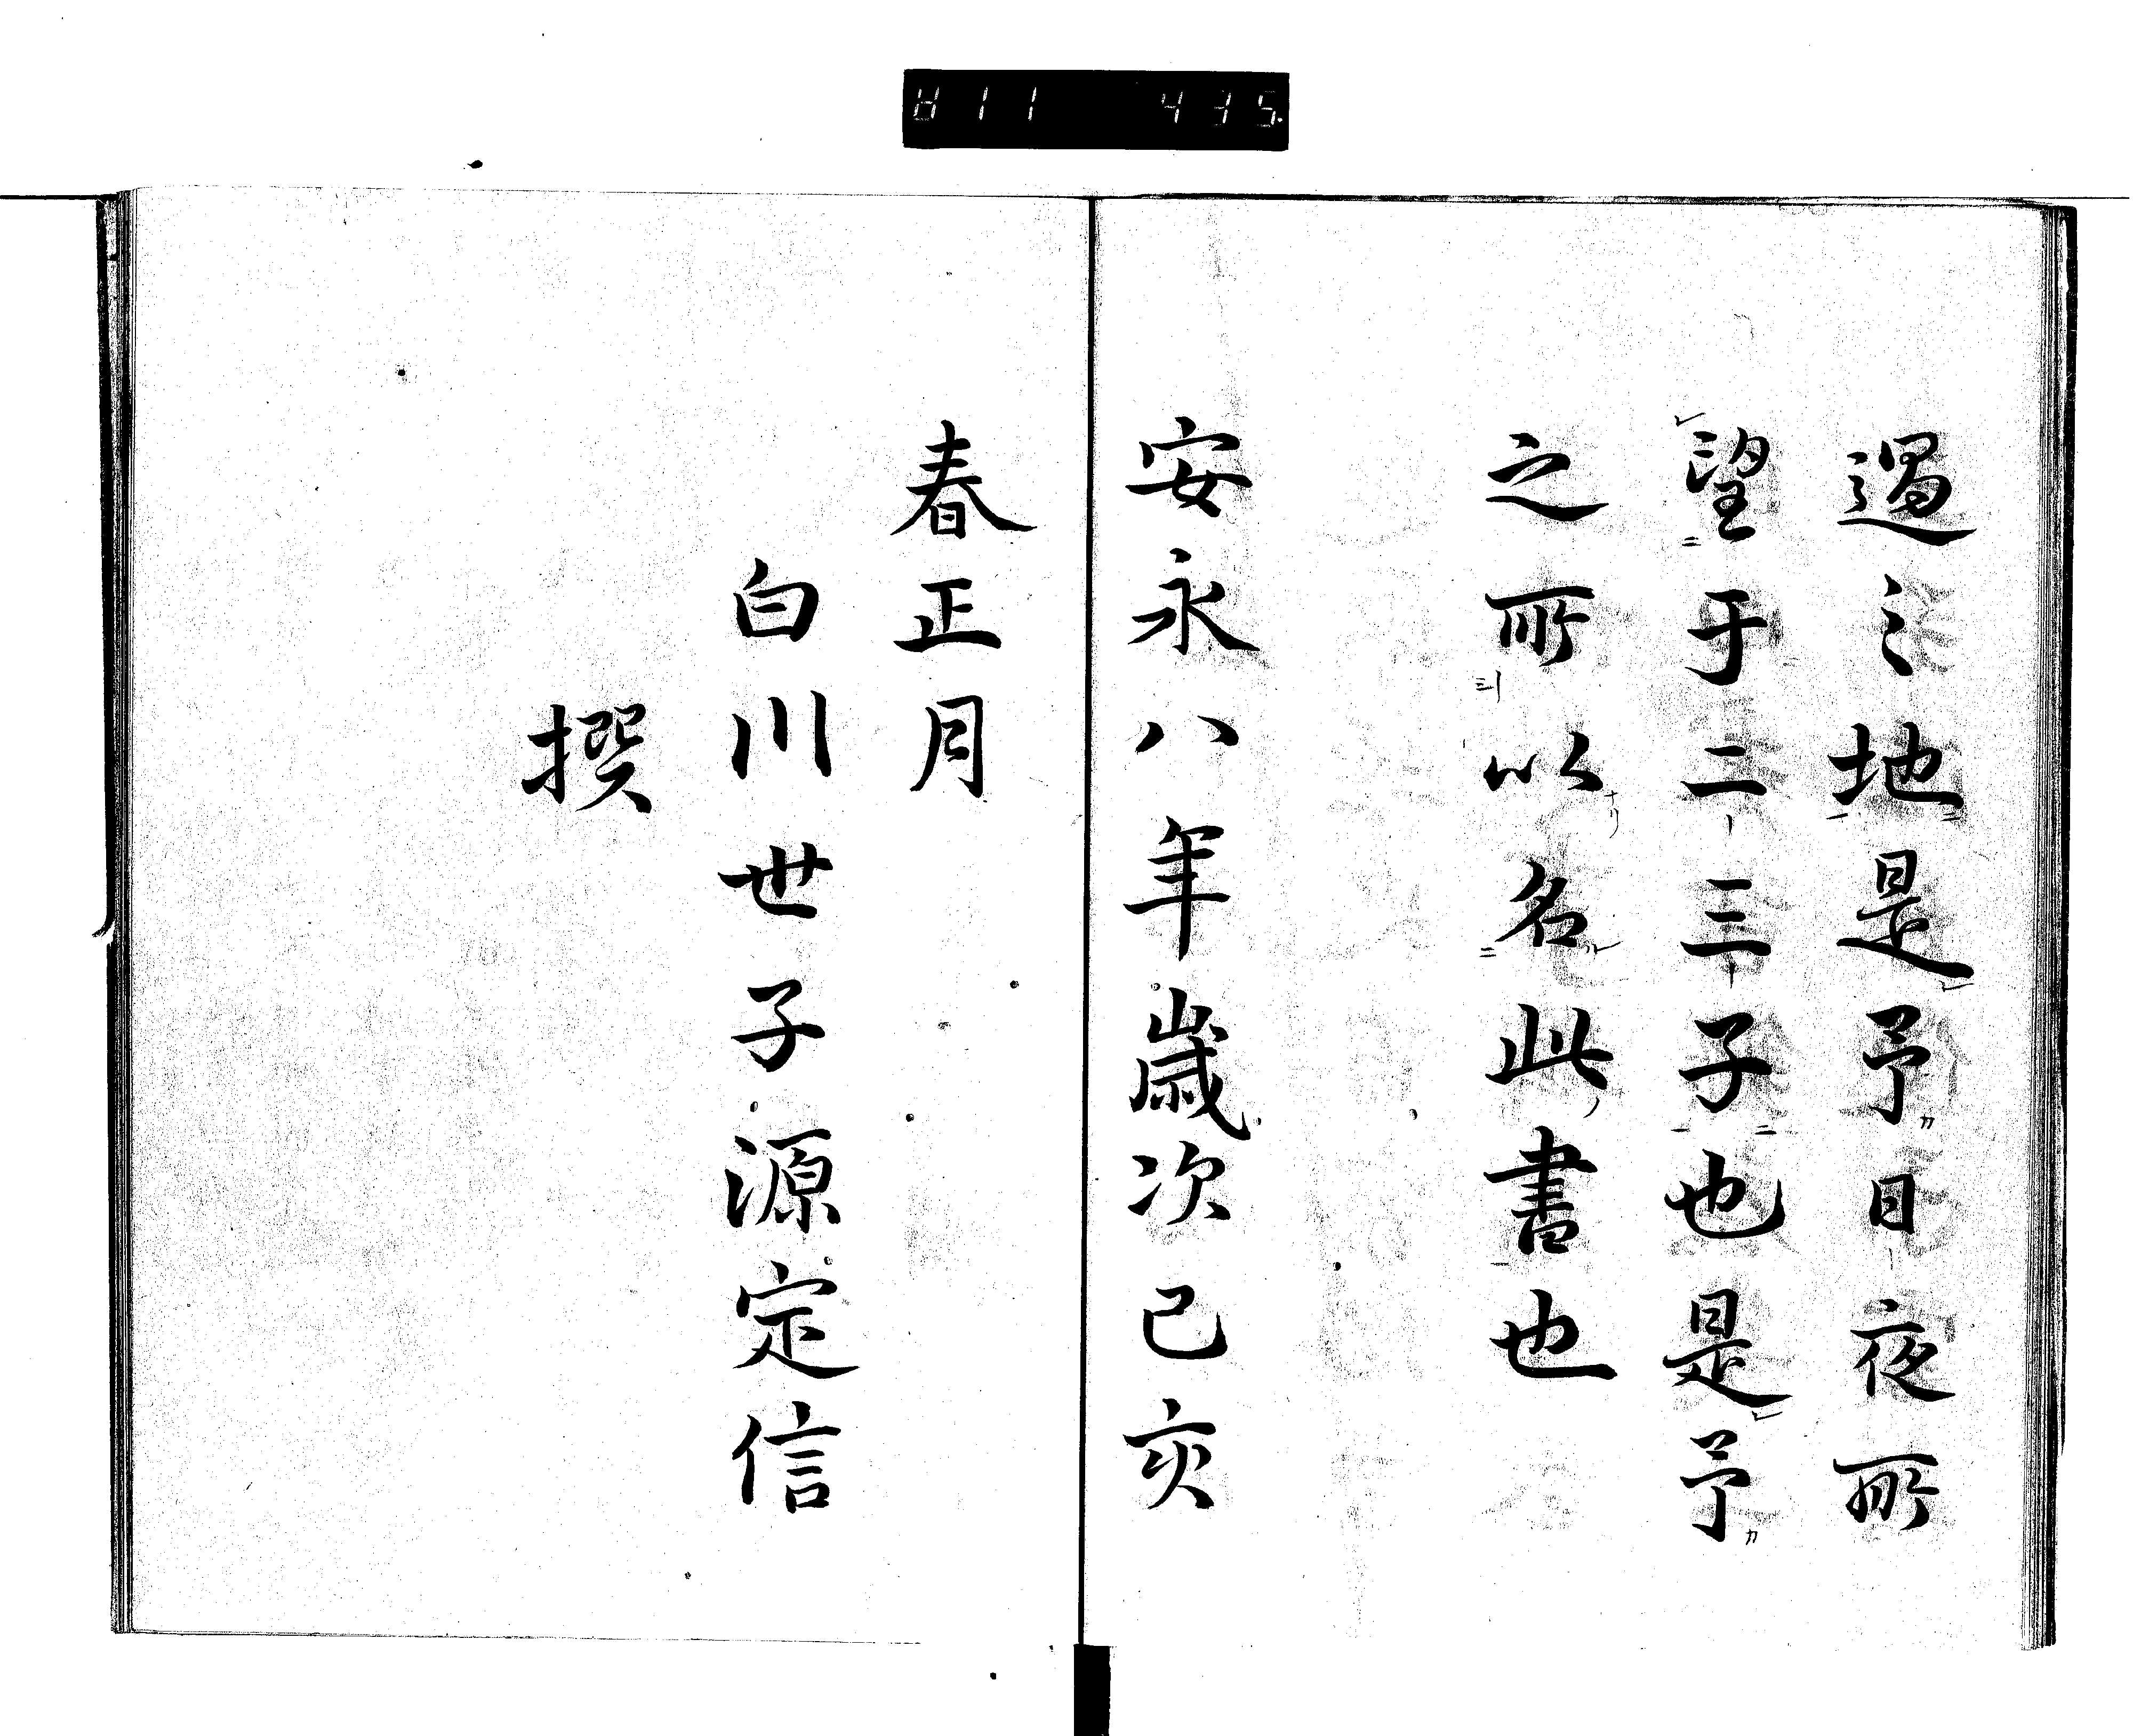 11 435
過之地是予日夜所
望于二三子也是予
之所以名此書也
安永八年歳次己亥
春正月
白川世子源定信
撰